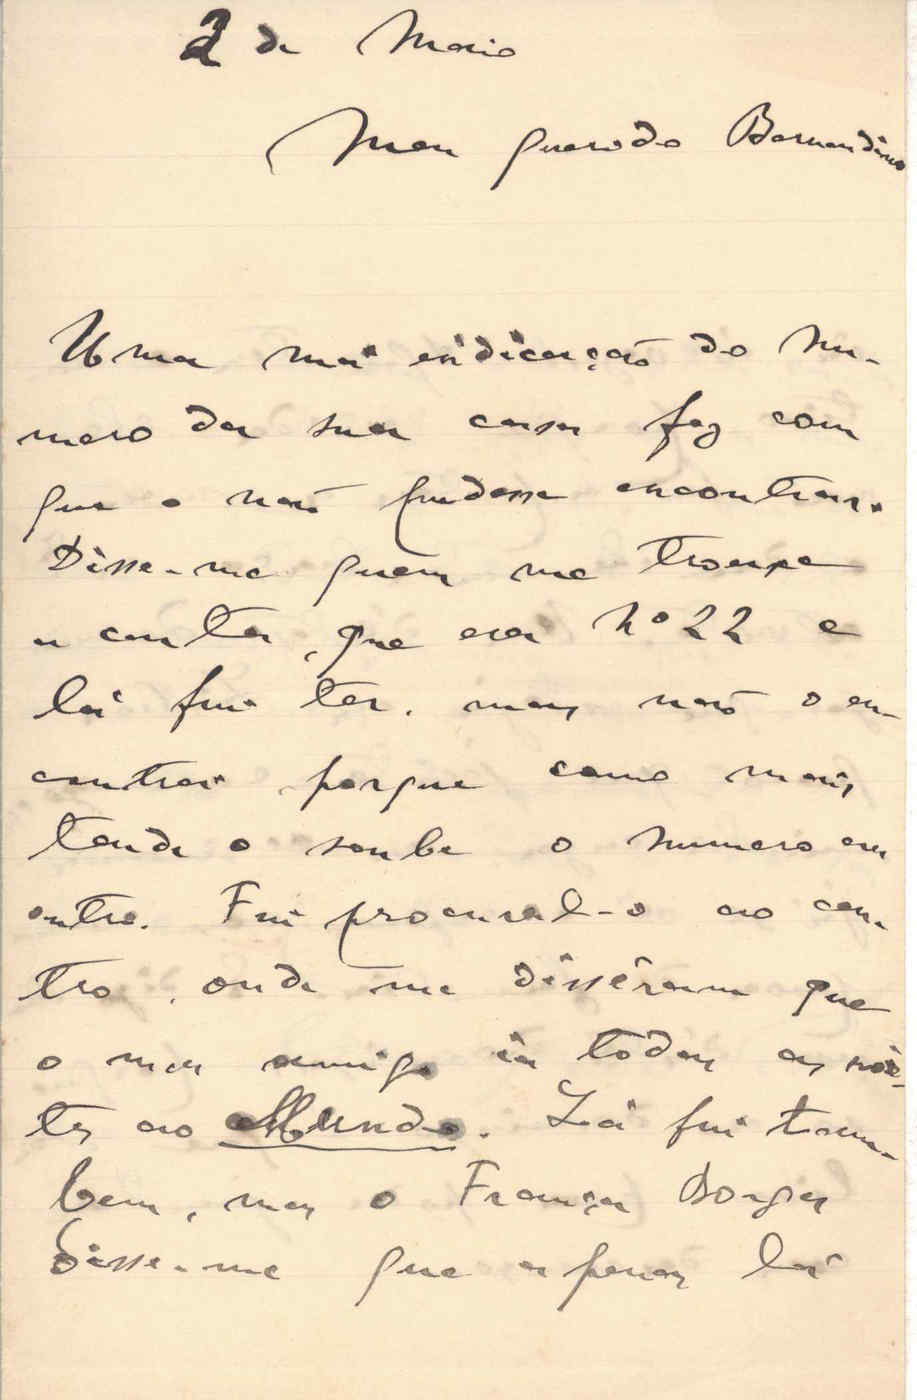 2 de Maio
Meu querido Bernardino
Uma má indicação do nu-
mero da sua casa fez com
que o não pudesse encontrar.
Disse-me quem me trouxe
a carta, que era nº 22 e
lá fui ter, mas não o en-
contrei porque como mais
tarde o soube o numero era
outro. Fui procural-o ao cen-
tro, onde me disséram que
o meu amigo ia todas as noi-
tes ao Mundo. Lá fui tam-
bem, mas o França Borges
disse-me que apenas lá